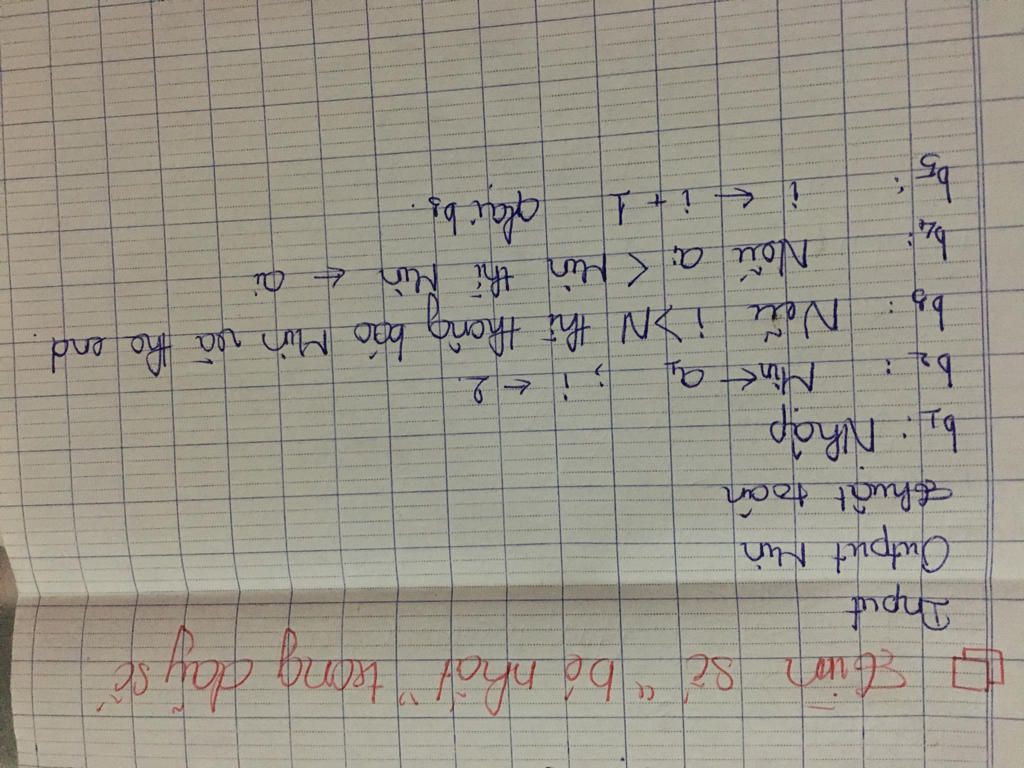 Tìm số "bé nhất" trong dãy số
Input
Output Min
Thuật toán
b1: Nhập
b2: Min ← a1 ; i ← 2
b3: Nếu i > N thì thông báo Min và tho end.
b4: Nếu ai < Min thì Min ← ai
b5: i ← i + 1 qlại b3.